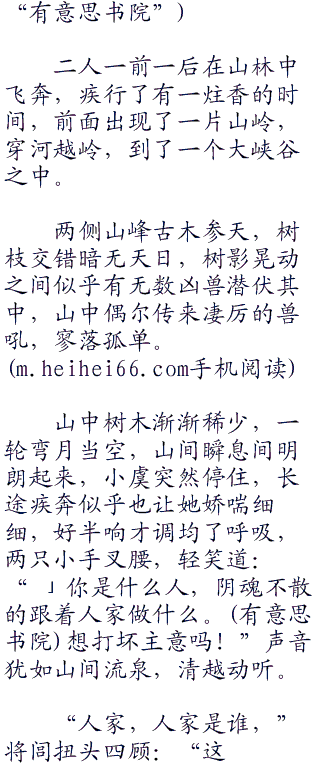 “有意思书院”)
二人一前一后在山林中
飞奔，疾行了有一炷香的时
间，前面出现了一片山岭，
穿河越岭，到了一个大峡谷
之中。
两侧山峰古木参天，树
枝交错暗无天日，树影晃动
之间似乎有无数凶兽潜伏其
中，山中偶尔传来凄厉的兽
吼，寥落孤单。
(m.heihei66.com手机阅读)
山中树木渐渐稀少，一
轮弯月当空，山间瞬息间明
朗起来，小虞突然停住，长
途疾奔似乎也让她娇喘细
细，好半响才调均了呼吸，
两只小手叉腰，轻笑道：
“ 」你是什么人，阴魂不散
的跟着人家做什么。(有意思
书院)想打坏主意吗！”声音
犹如山间流泉，清越动听。
“人家，人家是谁，”
将闾扭头四顾：“这